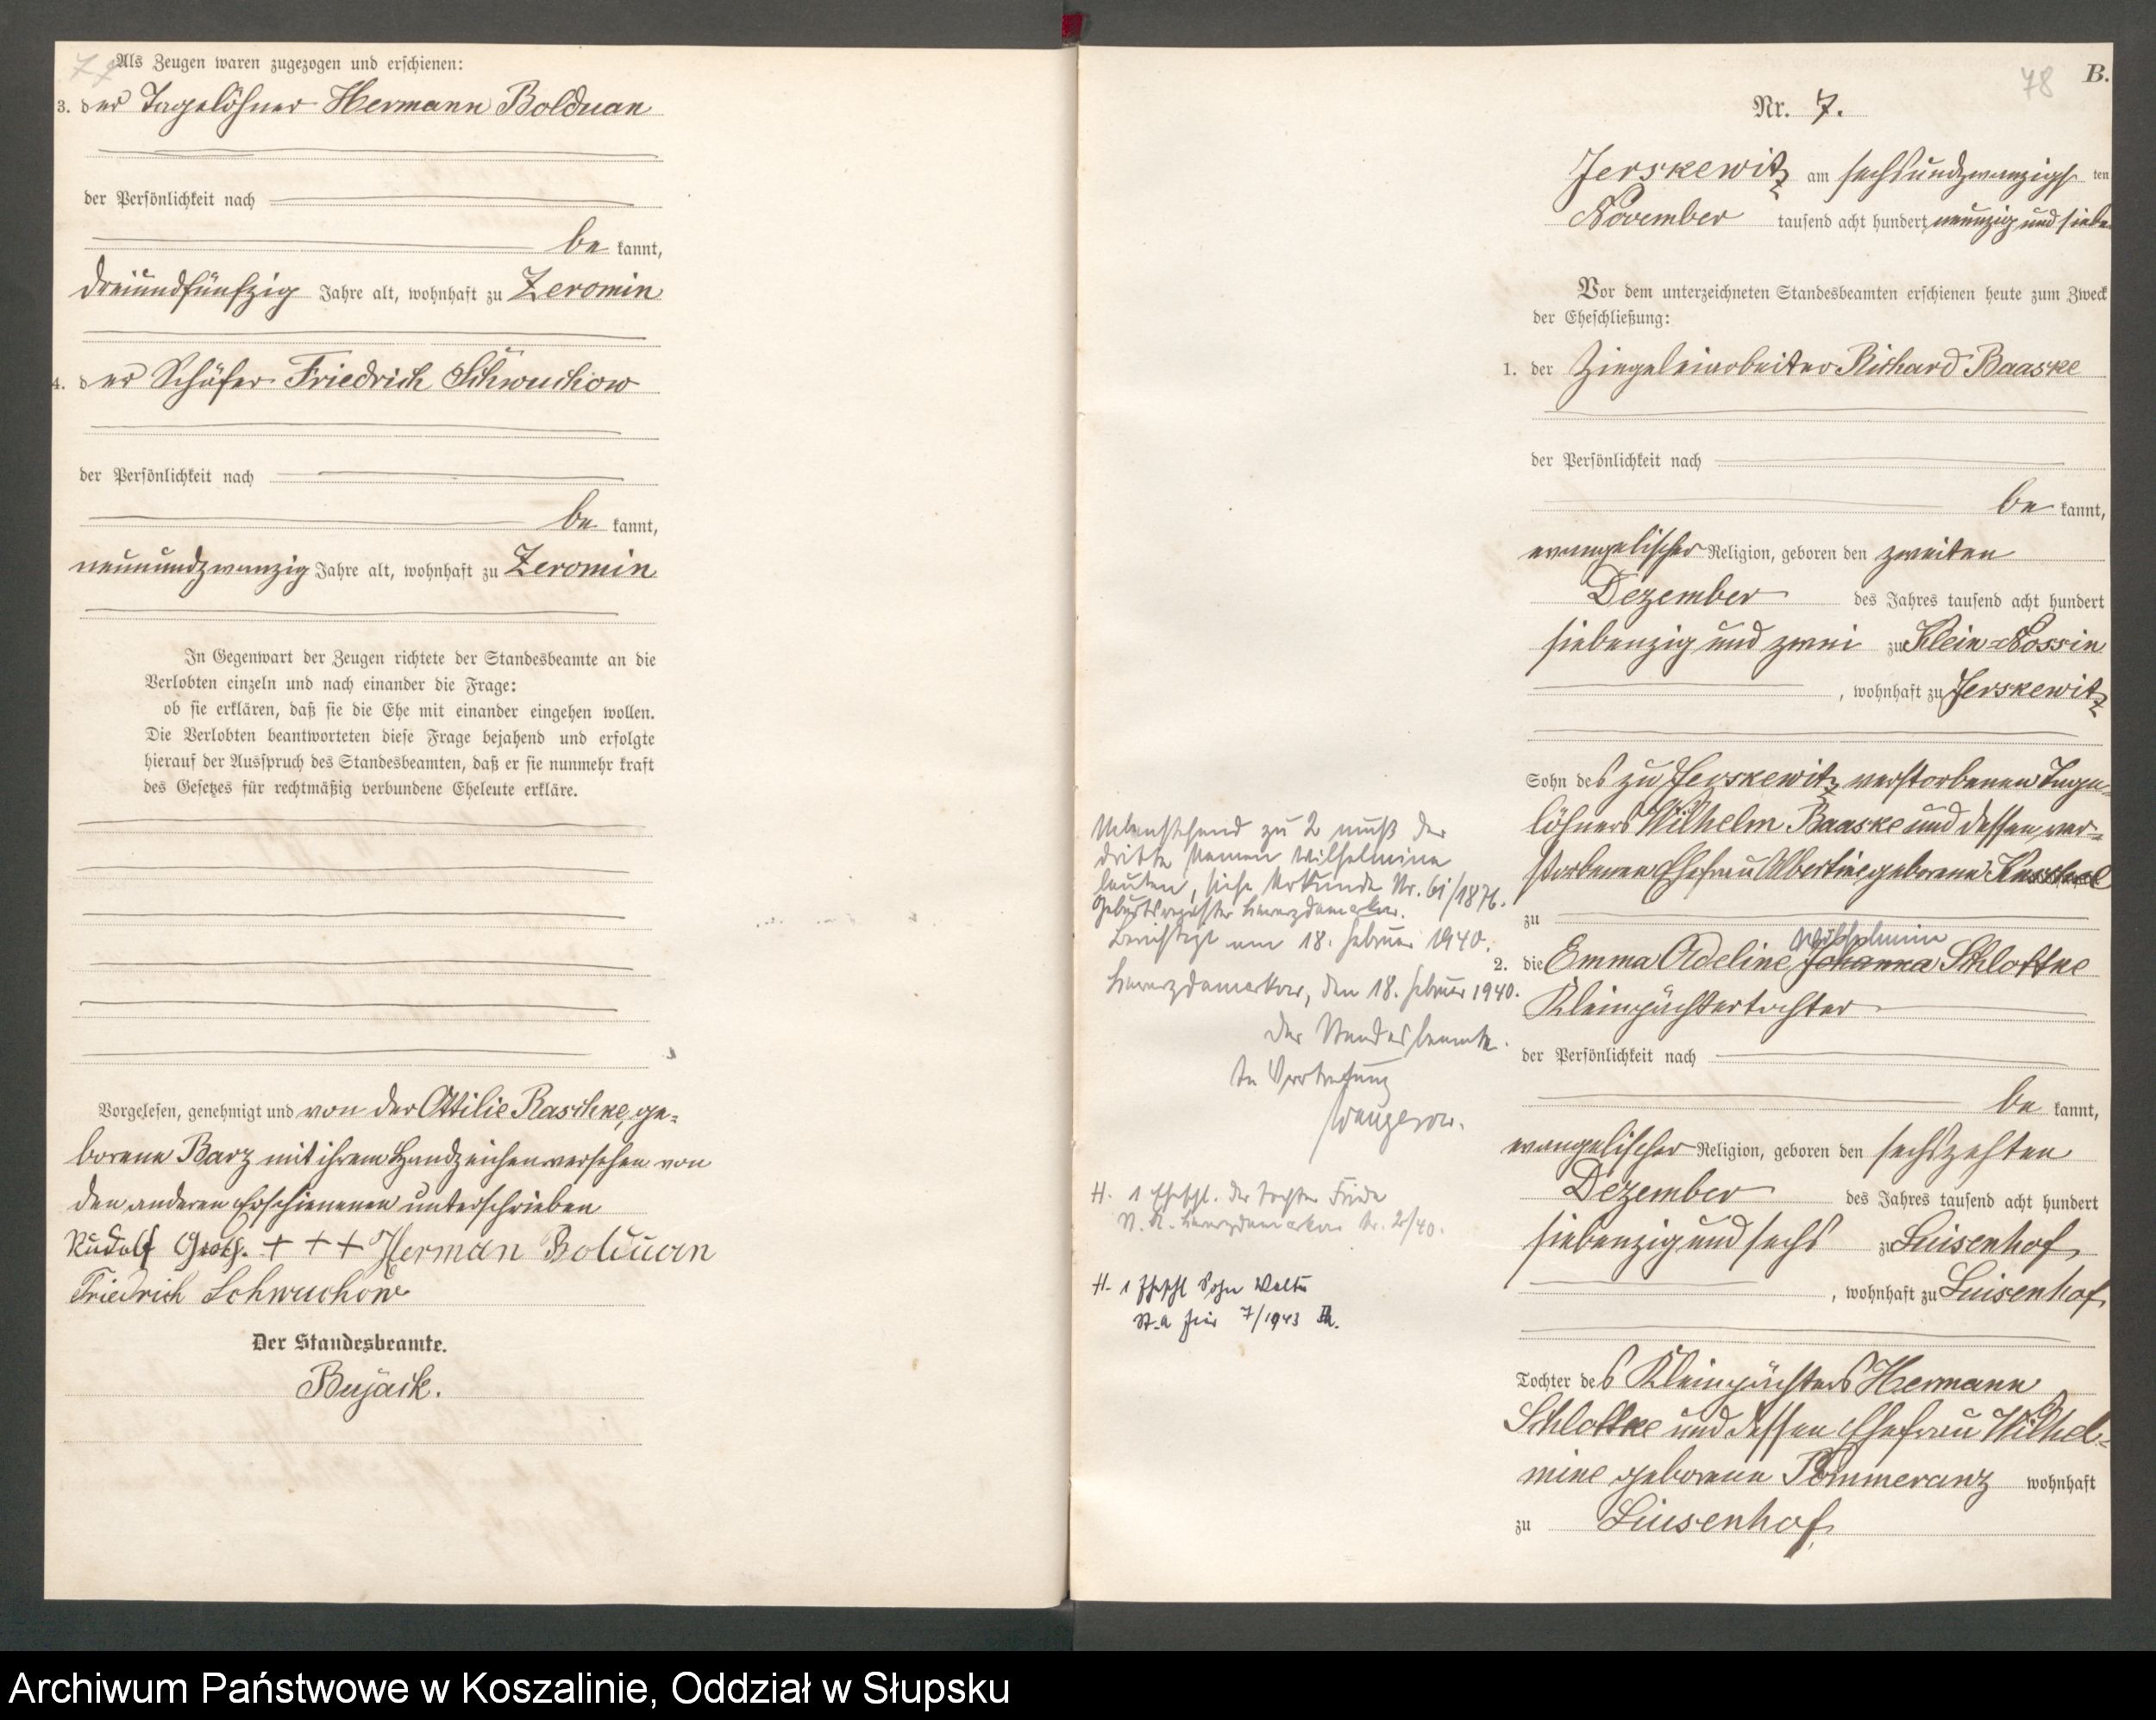 77
Als Zeugen waren zugezogen und erschienen:
3. der Tagelöhner Hermann Bolduan
der Persönlichkeit nach
be kannt,
dreiundfünfzig Jahre alt, wohnhaft zu Zeromin
4. der Schäfer Friedrich Schwuchow
der Persönlichkeit nach
be kannt,
neunundzwanzig Jahre alt, wohnhaft zu Zeromin
In Gegenwart der Zeugen richtete der Standesbeamte an die
Verlobten einzeln und nach einander die Frage:
ob sie erklären, daß sie die Ehe mit einander eingehen wollen.
Die Verlobten beantworteten diese Frage bejahend und erfolgte
hierauf der Ausspruch des Standesbeamten, daß er sie nunmehr kraft
des Gesetzes für rechtmäßig verbundene Eheleute erkläre.
Vorgelesen, genehmigt und von der Ottilie Raschke, ge-
borene Barz mit ihrem Handzeichen versehen von
den anderen Erschienenen unterschrieben
Rudolf Groth. + + + Herman Bolduan
Friedrich Schwuchow
Der Standesbeamte.
Bujack.
78
B.
Nr. 7.
Jerskewitz am sechsundzwanzigs ten
November tausend acht hundert neunzig und siebe
Vor dem unterzeichneten Standesbeamten erschienen heute zum Zweck
der Eheschließung:
1. der Ziegeleiarbeiter Richard Baaske
der Persönlichkeit nach
be kannt,
evangelischer Religion, geboren den zweiten
Dezember des Jahres tausend acht hundert
siebenzig und zwei zu Klein-Nossin
, wohnhaft zu Jerskewitz
Sohn des zu Jerskewitz verstorbenen Tage-
löhners Wilhelm Baaske und dessen ver-
storbenen Ehefrau Albertine geborene
zu
Wilhelmine
2. die Emma Adeline Johanna Schlottke
Kleinpächtertochter
der Persönlichkeit nach
be kannt,
evangelischer Religion, geboren den sechszehten
Dezember des Jahres tausend acht hundert
siebenzig und sechs zu Luisenhof
, wohnhaft zu Luisenhof
Tochter des Kleinpächters Hermann
Schlottke und dessen Ehefrau Wilhel-
mine geborene Pommeranz wohnhaft
zu Luisenhof
Nebenstehend zu 2 muß der
dritte Namen Wilhelmine
lauten, siehe Urkunde Nr. 61/1876.
Geburtsregister Schwarzdamerkow.
Berichtigt am 18. Februar 1940.
Schwarzdamerkow, den 18. Februar 1940.
Der Standesbeamte.
In Vertretung
H. 1 Eheschl. der Tochter Frida
Schwarzdamerkow Nr. 2/40.
H. 1 Eheschl Sohn Walter
St. A 7/1943
Archiwum Państwowe w Koszalinie, Oddział w Słupsku